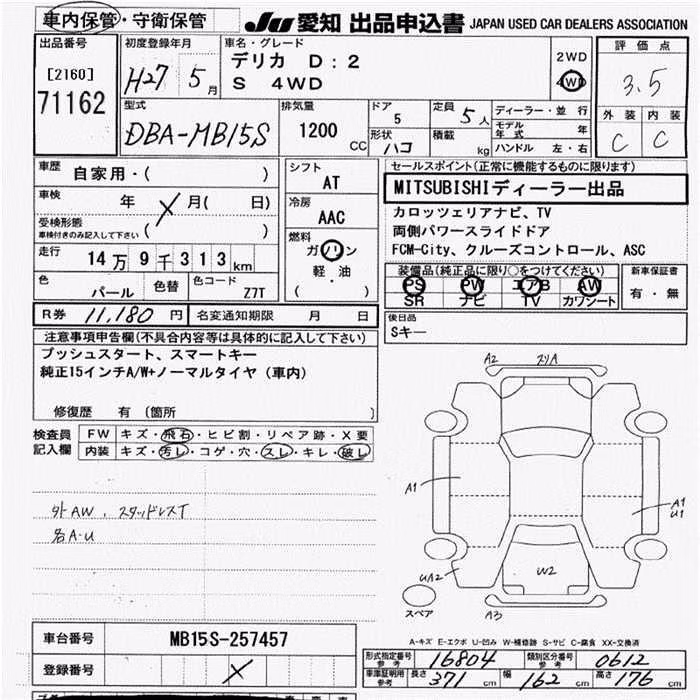 車内保管・守衛保管
JU 愛知 出品申込書 JAPAN USED CAR DEALERS ASSOCIATION
出品番号
[2160]
71162
初度登録年月
H27 5月
車名・グレード
デリカ D:2
S 4WD
2WD
4WD
評価点
3.5
外装 内装
C C
型式
DBA-MB15S
排気量
1200 CC
ドア
5
形状
ハコ
定員
5人
積載
kg
ディーラー・並行
モデル年式 年
ハンドル 左・右
車歴
自家用・( )
車検 年 月( 日)
受検形態
車検付きのみ記入して下さい ( )
走行 14万9千313km
色 パール
色替
色コード Z7T
シフト
AT
冷房
AAC
燃料
ガソリン
軽・油
( )
セールスポイント(正常に機能するものに限ります)
MITSUBISHIディーラー出品
カロッツェリアナビ、TV
両側パワースライドドア
FCM-City、クルーズコントロール、ASC
装備品(純正品に限り○をつけてください)
PS PW エアB AW
SR ナビ TV カワシート
新車保証書
有・無
R券 11,180円 名変通知期限 月 日
後日品
Sキー
注意事項申告欄(不具合内容等は具体的に記入して下さい)
プッシュスタート、スマートキー
純正15インチA/W+ノーマルタイヤ(車内)
修復歴 有 (箇所 )
検査員記入欄
FW キズ・飛石・ヒビ割・リペア跡・X要
内装 キズ・汚レ・コゲ・穴・スレ・キレ・破レ
外AW、スタッドレスT
各A-U
A2 スリA
A1
A1
U1
UA2
W2
A3
スペア
A-キズ E-エクボ U-凹み W-補修跡 S-サビ C-腐食 XX-交換済
車台番号 MB15S-257457
登録番号
形式指定番号 参考 16804 類別区分番号 参考 0612
車庫証明用 参考 長さ 371cm 幅 162cm 高さ 176cm